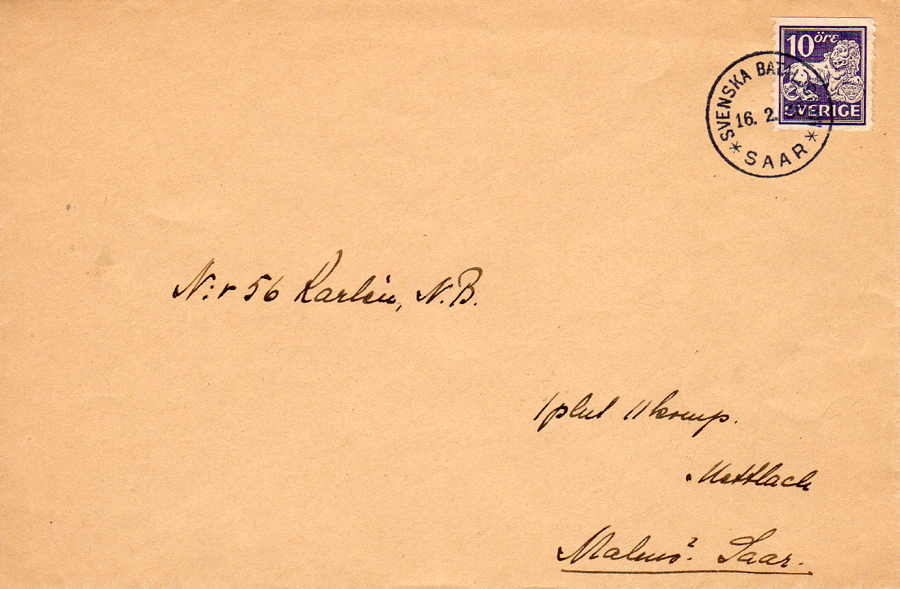 10 öre
SVERIGE
SVENSKA BATALJONEN
16. 2.
* SAAR *
N:r 56 Karlén, N.B.
1 plut 11 komp.
Mettlach
Malmö 2. Saar.